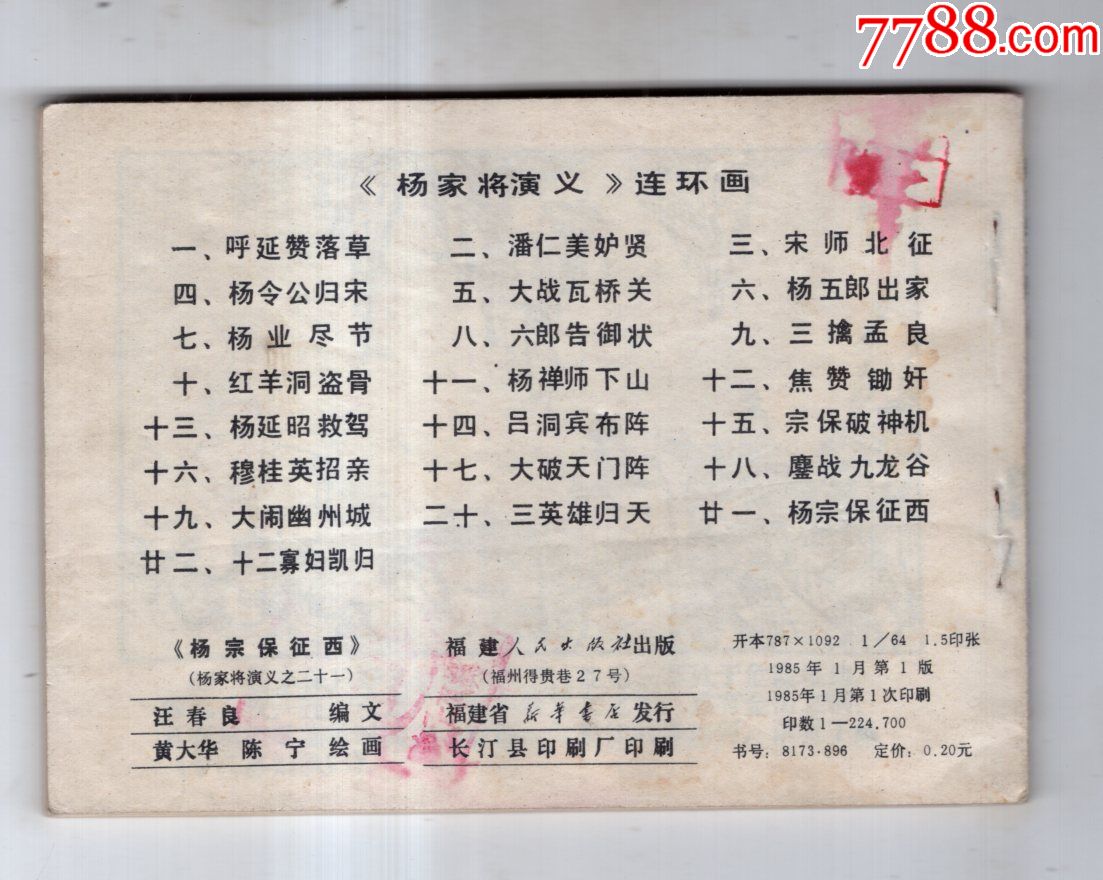 7788.com
《杨家将演义》连环画
一、呼延赞落草 二、潘仁美妒贤 三、宋师北征
四、杨令公归宋 五、大战瓦桥关 六、杨五郎出家
七、杨业尽节 八、六郎告御状 九、三擒孟良
十、红羊洞盗骨 十一、杨禅师下山 十二、焦赞锄奸
十三、杨延昭救驾 十四、吕洞宾布阵 十五、宗保破神机
十六、穆桂英招亲 十七、大破天门阵 十八、鏖战九龙谷
十九、大闹幽州城 二十、三英雄归天 廿一、杨宗保征西
廿二、十二寡妇凯归
《杨宗保征西》
(杨家将演义之二十一)
汪春良 编文
黄大华 陈宁 绘画
福建人民出版社出版
(福州得贵巷27号)
福建省新华书店发行
长汀县印刷厂印刷
开本787×1092 1/64 1.5印张
1985年1月第1版
1985年1月第1次印刷
印数1—224.700
书号：8173·896 定价：0.20元